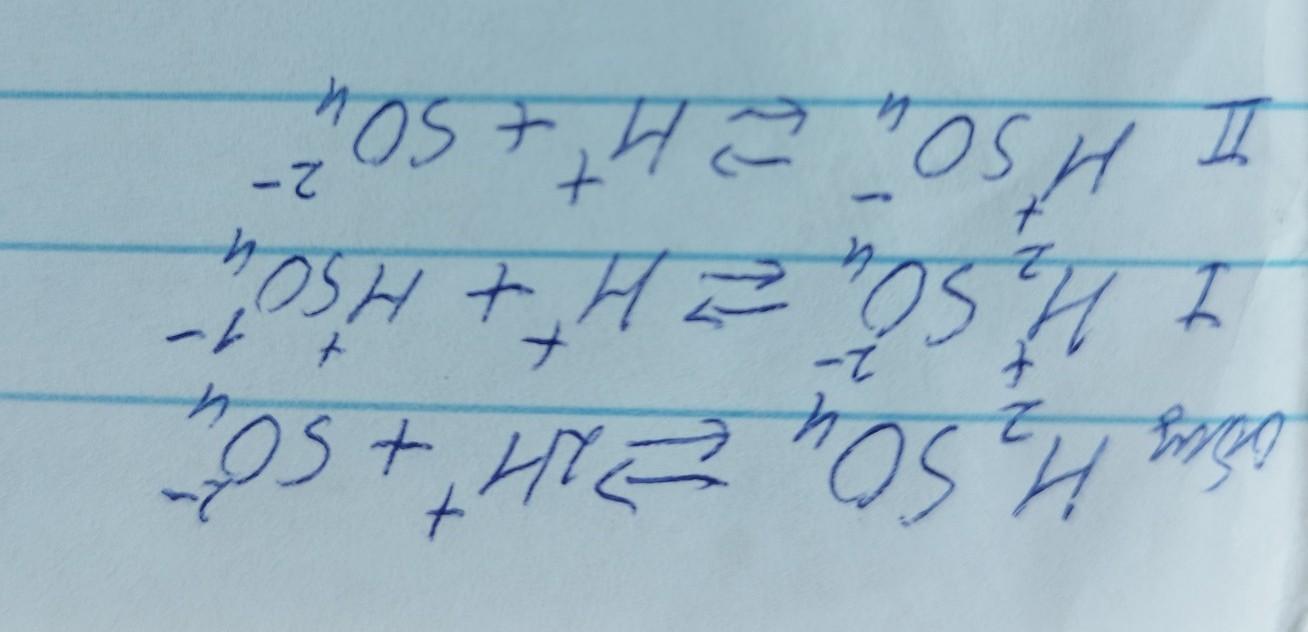 общ H₂SO₄ ⇄ 2H⁺ + SO₄²⁻
I H₂⁺SO₄²⁻ ⇄ H⁺ + H⁺SO₄¹⁻
II H⁺SO₄⁻ ⇄ H⁺ + SO₄²⁻